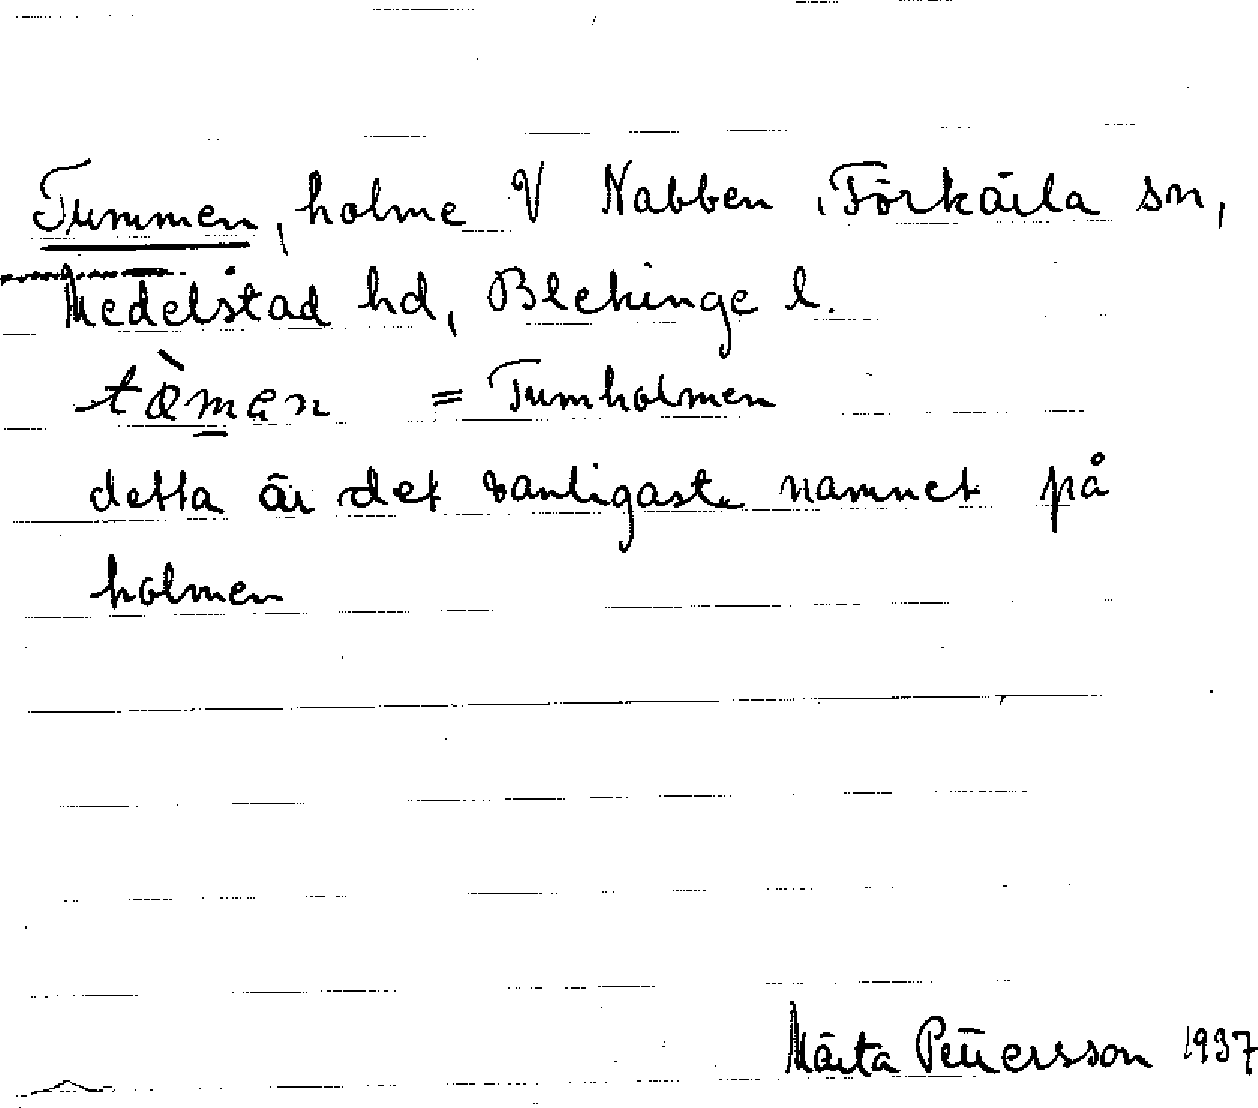 Tummen, holme V Nabben, Förkärla sn,
Medelstad hd, Blekinge l.
= Tumholmen
detta är det vanligaste namnet på
holmen
Märta Petersson 1937